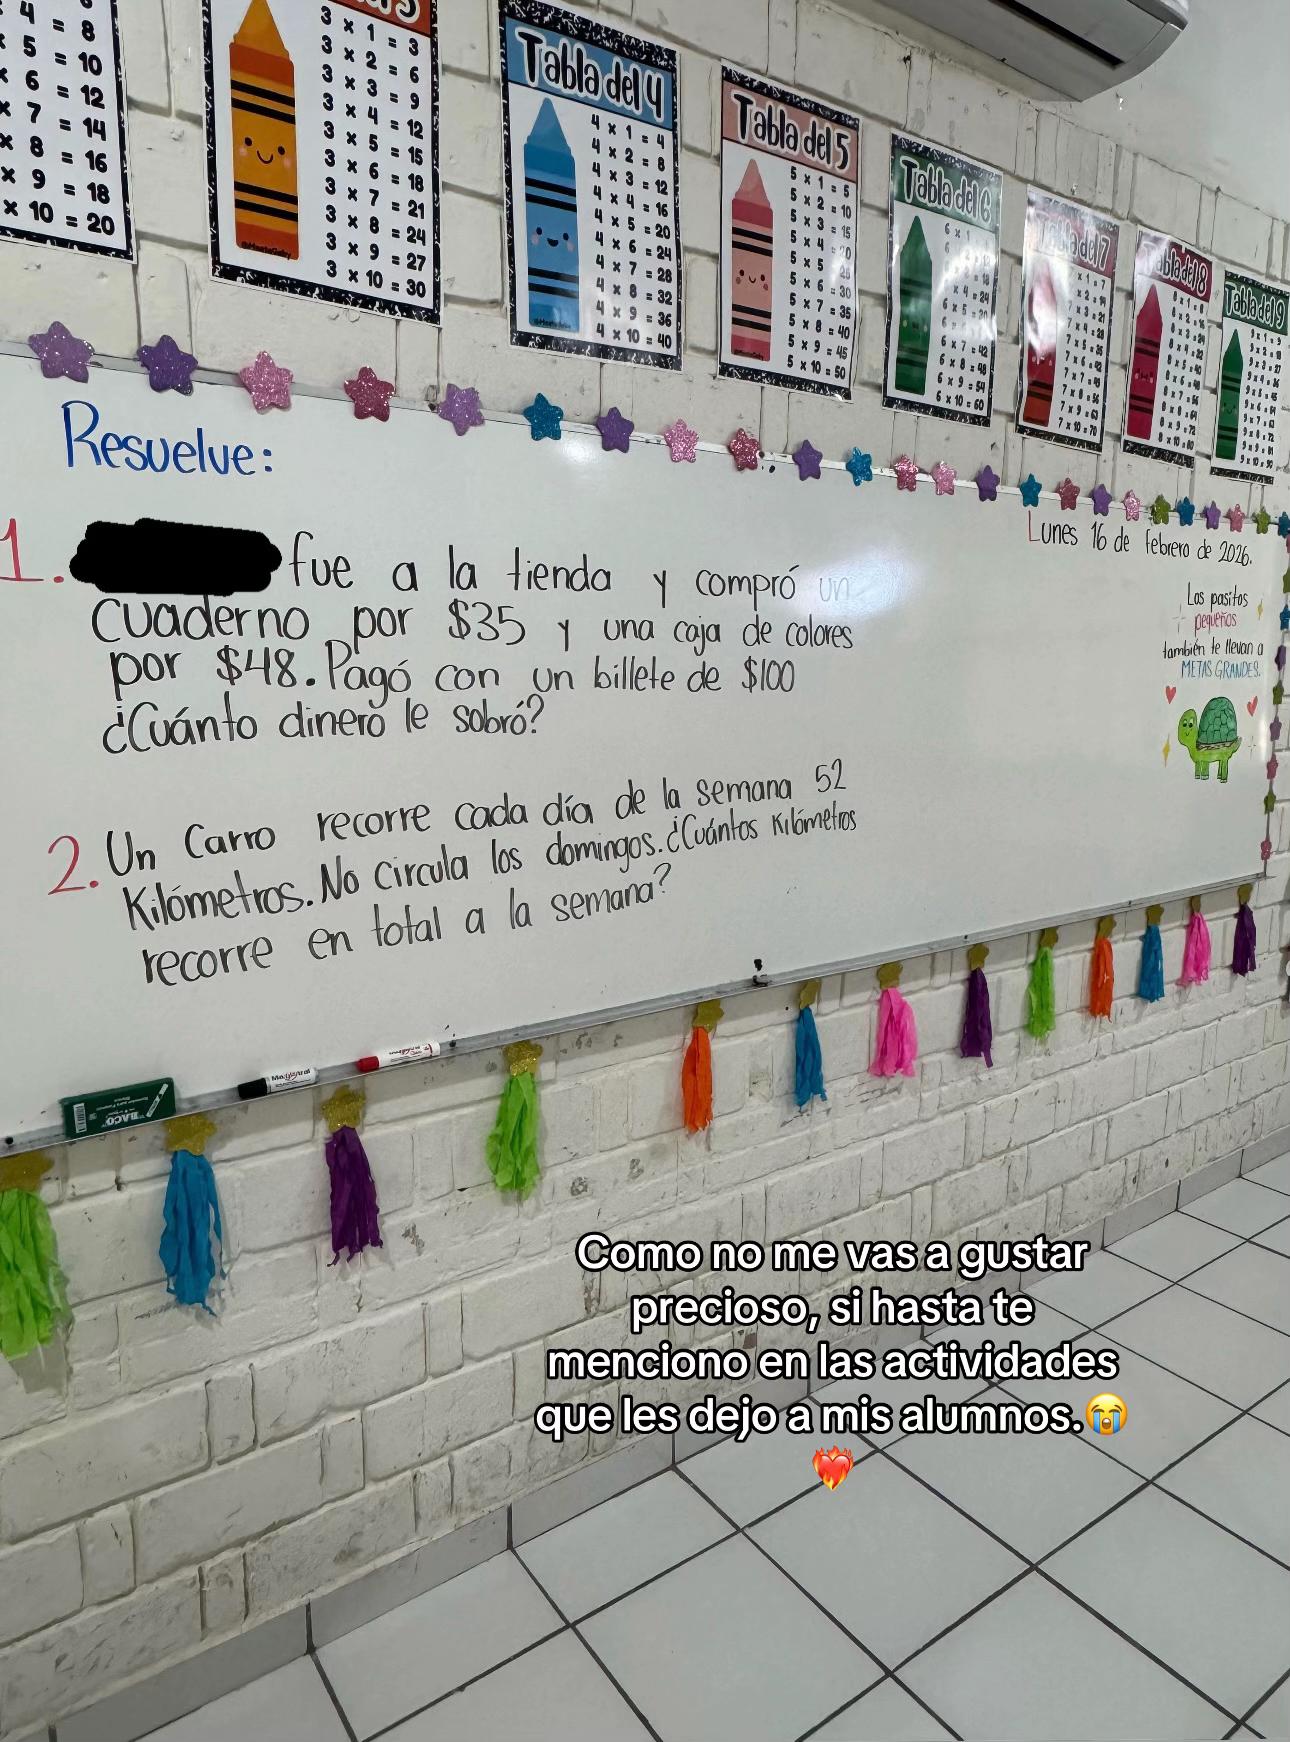 4 = 8
5 = 10
6 = 12
x 7 = 14
x 8 = 16
x 9 = 18
x 10 = 20
3 x 1 = 3
3 x 2 = 6
3 x 3 = 9
3 x 4 = 12
3 x 5 = 15
3 x 6 = 18
3 x 7 = 21
3 x 8 = 24
3 x 9 = 27
3 x 10 = 30
Tabla del 4
4 x 1 = 4
4 x 2 = 8
4 x 3 = 12
4 x 4 = 16
4 x 5 = 20
4 x 6 = 24
4 x 7 = 28
4 x 8 = 32
4 x 9 = 36
4 x 10 = 40
Tabla del 5
5 x 1 = 5
5 x 2 = 10
5 x 3 = 15
5 x 4 = 20
5 x 5 25
5 x 6 = 30
5 x 7 = 35
5 x 8 = 40
5 x 9 = 45
5 x 10 = 50
Tabla del 6
6 x 1
6 x 7 = 42
6 x 8 = 48
6 x 9 = 54
6 x 10 = 60
Tabla del 7
7 x 9 = 63
7 x 10 = 70
Tabla del 8
8 x 10 = 80
Tabla del 9
9 x 1 = 9
9 x 2 = 18
9 x 3 = 27
9 x 4 = 36
9 x 8 = 72
9 x 9 = 81
9 x 10 = 90
Resuelve:
Lunes 16 de febrero de 2026.
1. fue a la tienda y compró un
cuaderno por $35 y una caja de colores
por $48. Pagó con un billete de $100
¿Cuánto dinero le sobró?
2. Un Carro recorre cada día de la semana 52
Kilómetros. No circula los domingos. ¿Cuántos Kilómetros
recorre en total a la semana?
Los pasitos
pequeños
también te llevan a
METAS GRANDES.
BACO
Magistral
Como no me vas a gustar
precioso, si hasta te
menciono en las actividades
que les dejo a mis alumnos.😭
❤️‍🔥